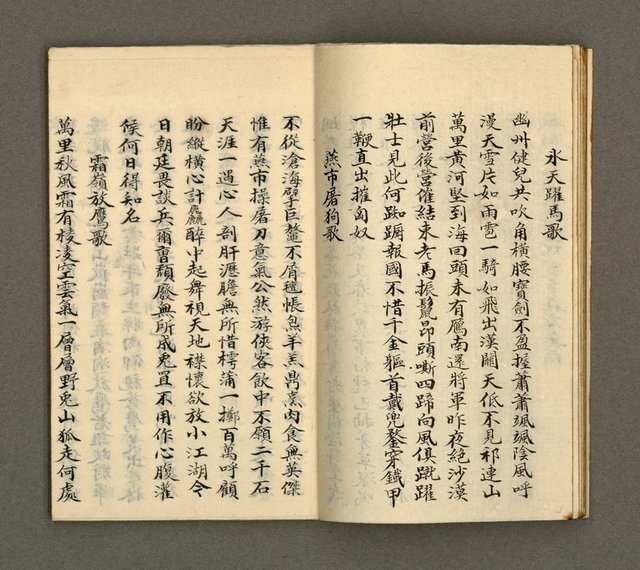 冰天躍馬歌
幽州健兒共吹角橫腰寶劍不盈握蕭蕭颯颯陰風呼
漫天雪片如雨雹一騎如飛出漢關天低不見祁連山
萬里黃河堅到海回頭未有鴈南還將軍昨夜絕沙漠
前營後營催結束老馬振鬣昂頭嘶四蹄向風俱蹴躍
壯士見此何踟躕報國不惜千金軀首戴兜鍪穿鐵甲
一鞭直出摧匈奴
燕市屠狗歌
不從滄海擘巨鼇不屑氊帳炰羊羔鼎烹肉食無英傑
惟有燕市操屠刀意氣公然游俠客飲中不願二千石
天涯一遇心人剖肝瀝膽無所惜樗蒲一擲百萬呼顧
盼縱橫心計麤醉中起舞視天地襟懷欲放小江湖令
日朝廷畏談兵爾曹頹廢無所成兎罝不用作心腹灌
侯何日得知名
霜嶺放鷹歌
萬里秋風霜有棱凌空雲氣一層層野兎山狐走何處